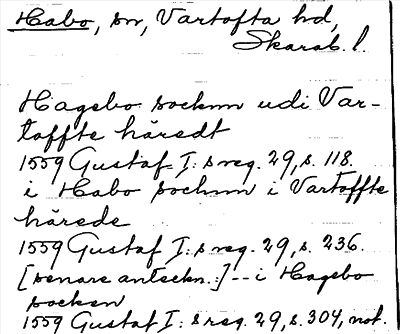 Habo, sn, Vartofta hd,
Skarab. l.
Hagebo socknn udi Var-
toffte häredt
1559 Gustaf I:s reg. 29, s. 118.
i Habo socknn i Vartoffte
härede
1559 Gustaf I:s reg. 29, s. 236.
[senare anteckn.:] -- i Hagebo
socken
1559 Gustaf I:s reg. 29, s. 304, not.